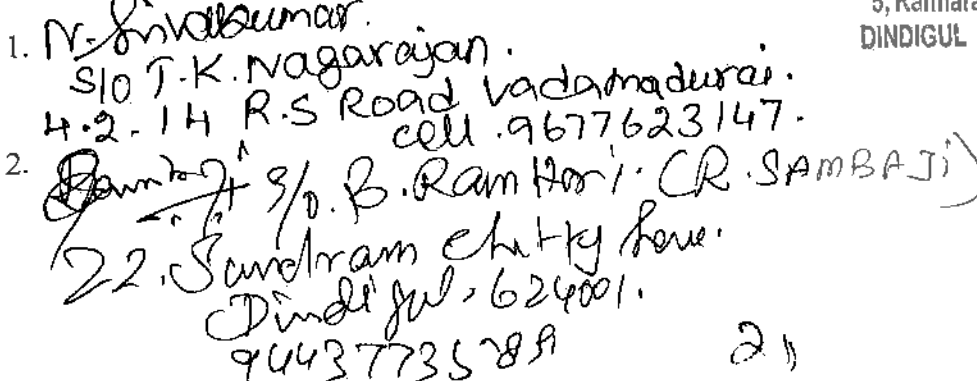 5,
DINDIGUL
1. N. Sivakumar.
S/O T.K. Nagarajan.
4.2.14 R.S Road Vadamadurai.
cell . 9677623147.
2. S/o. B. Ram Hari. (R. SAMBAJI)
22, Sundram Chetty
Dindigul. 624001.
2